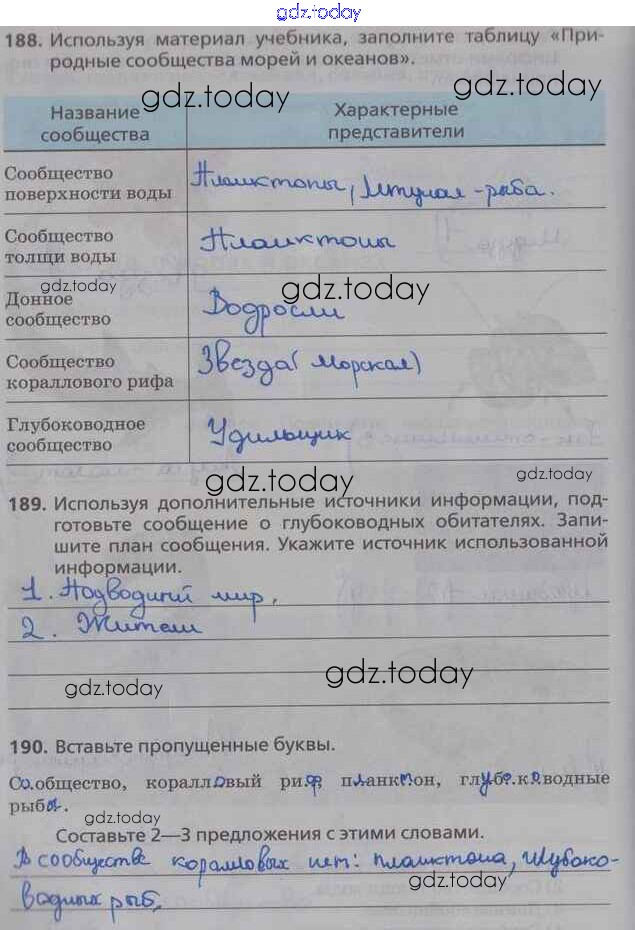 gdz.today
188. Используя материал учебника, заполните таблицу «При-
родные сообщества морей и океанов».
gdz.today
gdz.today
Название сообщества
Характерные представители
Сообщество поверхности воды
Планктоны, Летучая-рыба.
Сообщество толщи воды
Планктоны
gdz.today
gdz.today
Донное сообщество
Водросли
Сообщество кораллового рифа
Звезда (морская)
Глубоководное сообщество
Удильщик
gdz.today
gdz.today
189. Используя дополнительные источники информации, под-
готовьте сообщение о глубоководных обитателях. Запи-
шите план сообщения. Укажите источник использованной
информации.
1. Подводный мир.
2. Жители
gdz.today
gdz.today
190. Вставьте пропущенные буквы.
Со.общество, коралловый риф, планктон, глубоководные
рыбы.
gdz.today
Составьте 2—3 предложения с этими словами.
В сообществе коралловых нет: планктона, глубоко-
водных рыб.
gdz.today